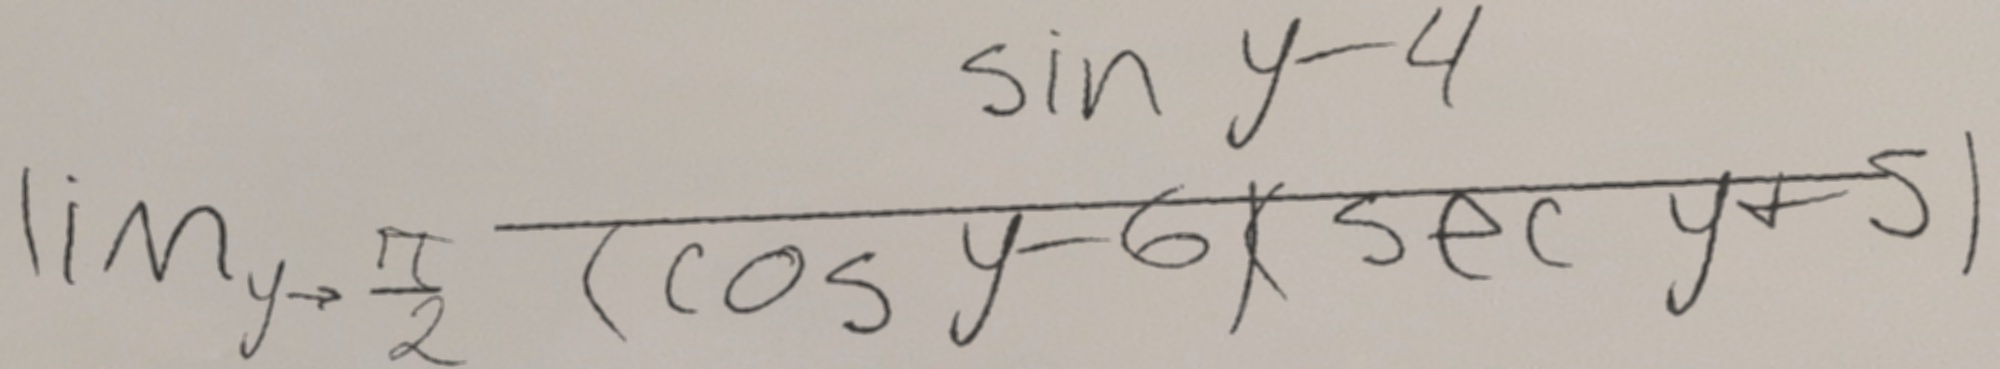 lim_{y→\frac{π}{2}} \frac{sin y-4}{(cos y-6)(sec y+5)}